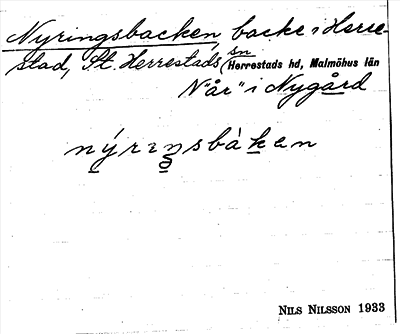 Nyringsbacken, backe i Herre-
stad, St. Herrestads sn (Herrestads hd, Malmöhus län
N "år" i Nygård
nýrıŋsbàkən
NILS NILSSON 1933